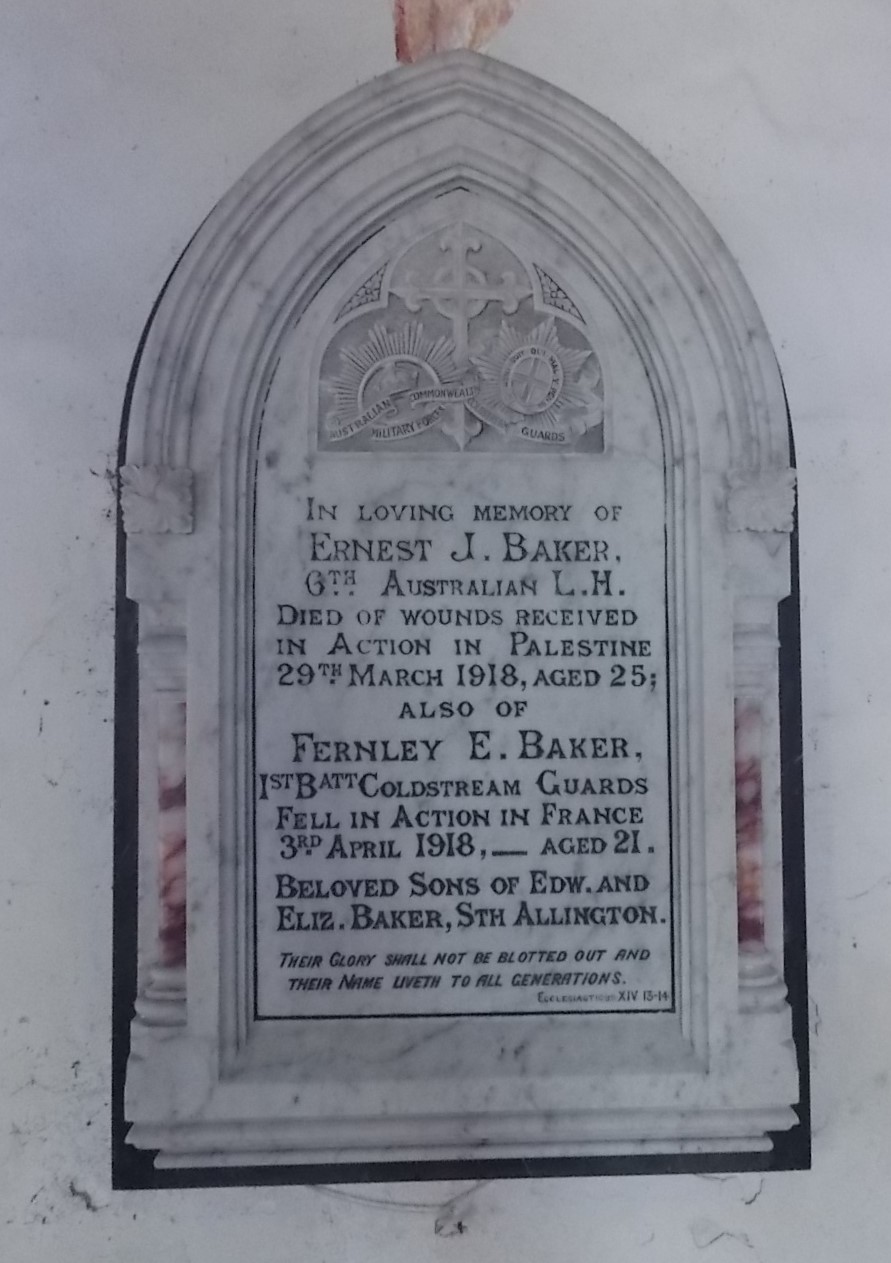 AUSTRALIAN COMMONWEALTH
MILITARY FORCES
GUARDS
IN LOVING MEMORY OF
ERNEST J. BAKER,
6TH AUSTRALIAN L.H.
DIED OF WOUNDS RECEIVED
IN ACTION IN PALESTINE
29TH MARCH 1918, AGED 25;
ALSO OF
FERNLEY E. BAKER,
1ST BATT COLDSTREAM GUARDS
FELL IN ACTION IN FRANCE
3RD APRIL 1918, — AGED 21.
BELOVED SONS OF EDW. AND
ELIZ. BAKER, STH ALLINGTON.
THEIR GLORY SHALL NOT BE BLOTTED OUT AND
THEIR NAME LIVETH TO ALL GENERATIONS.
ECCLESIASTICUS XIV 13-14